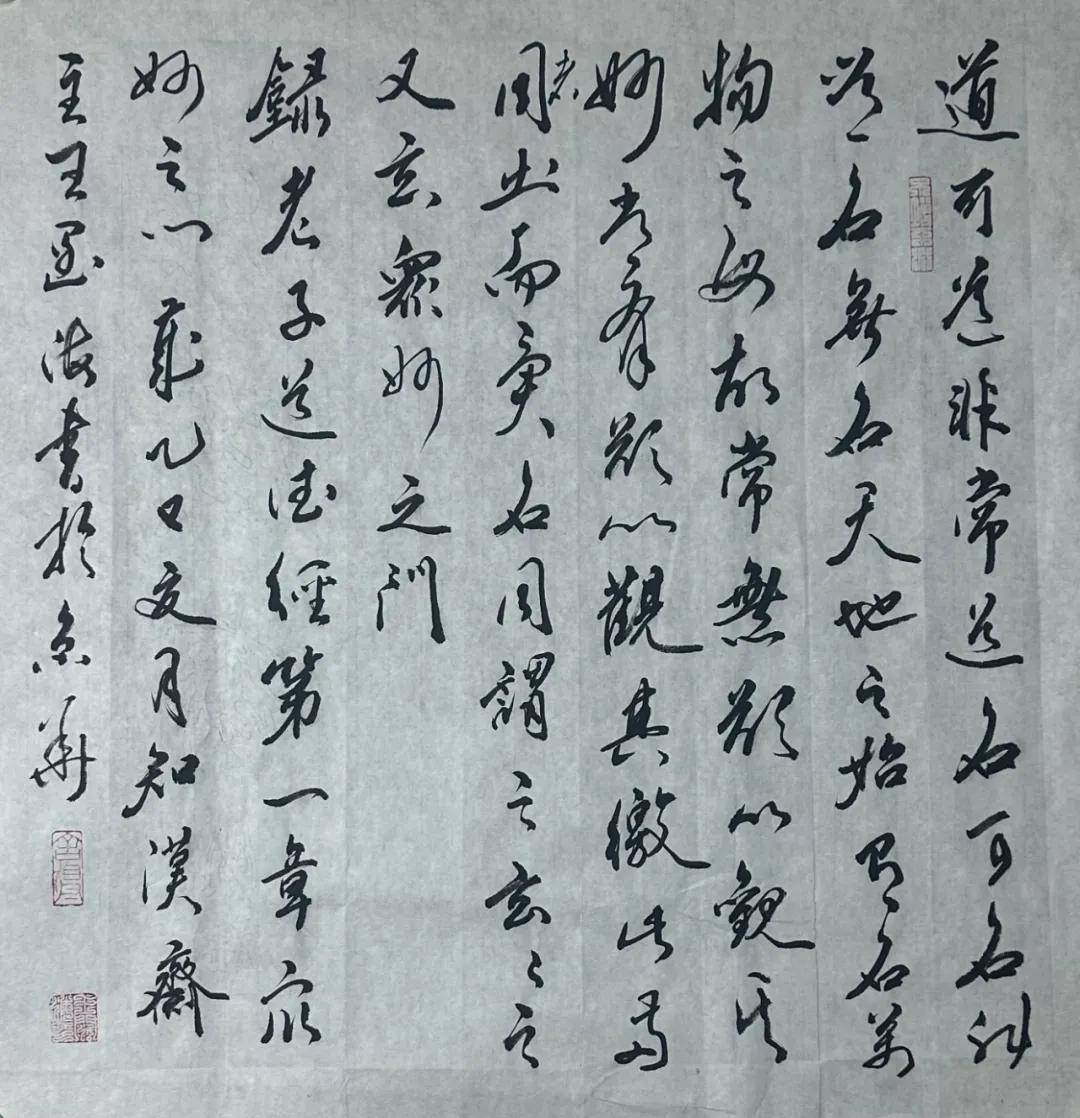 道可道非常道名可名非
常名無名天地之始有名萬
物之母故常無欲以觀其
妙常有欲以觀其徼此兩
者同出而異名同謂之玄〻之
又玄眾妙之門
錄老子道德經第一章眾
妙之門歲乙巳夏月知漢齋
主王海書於京華